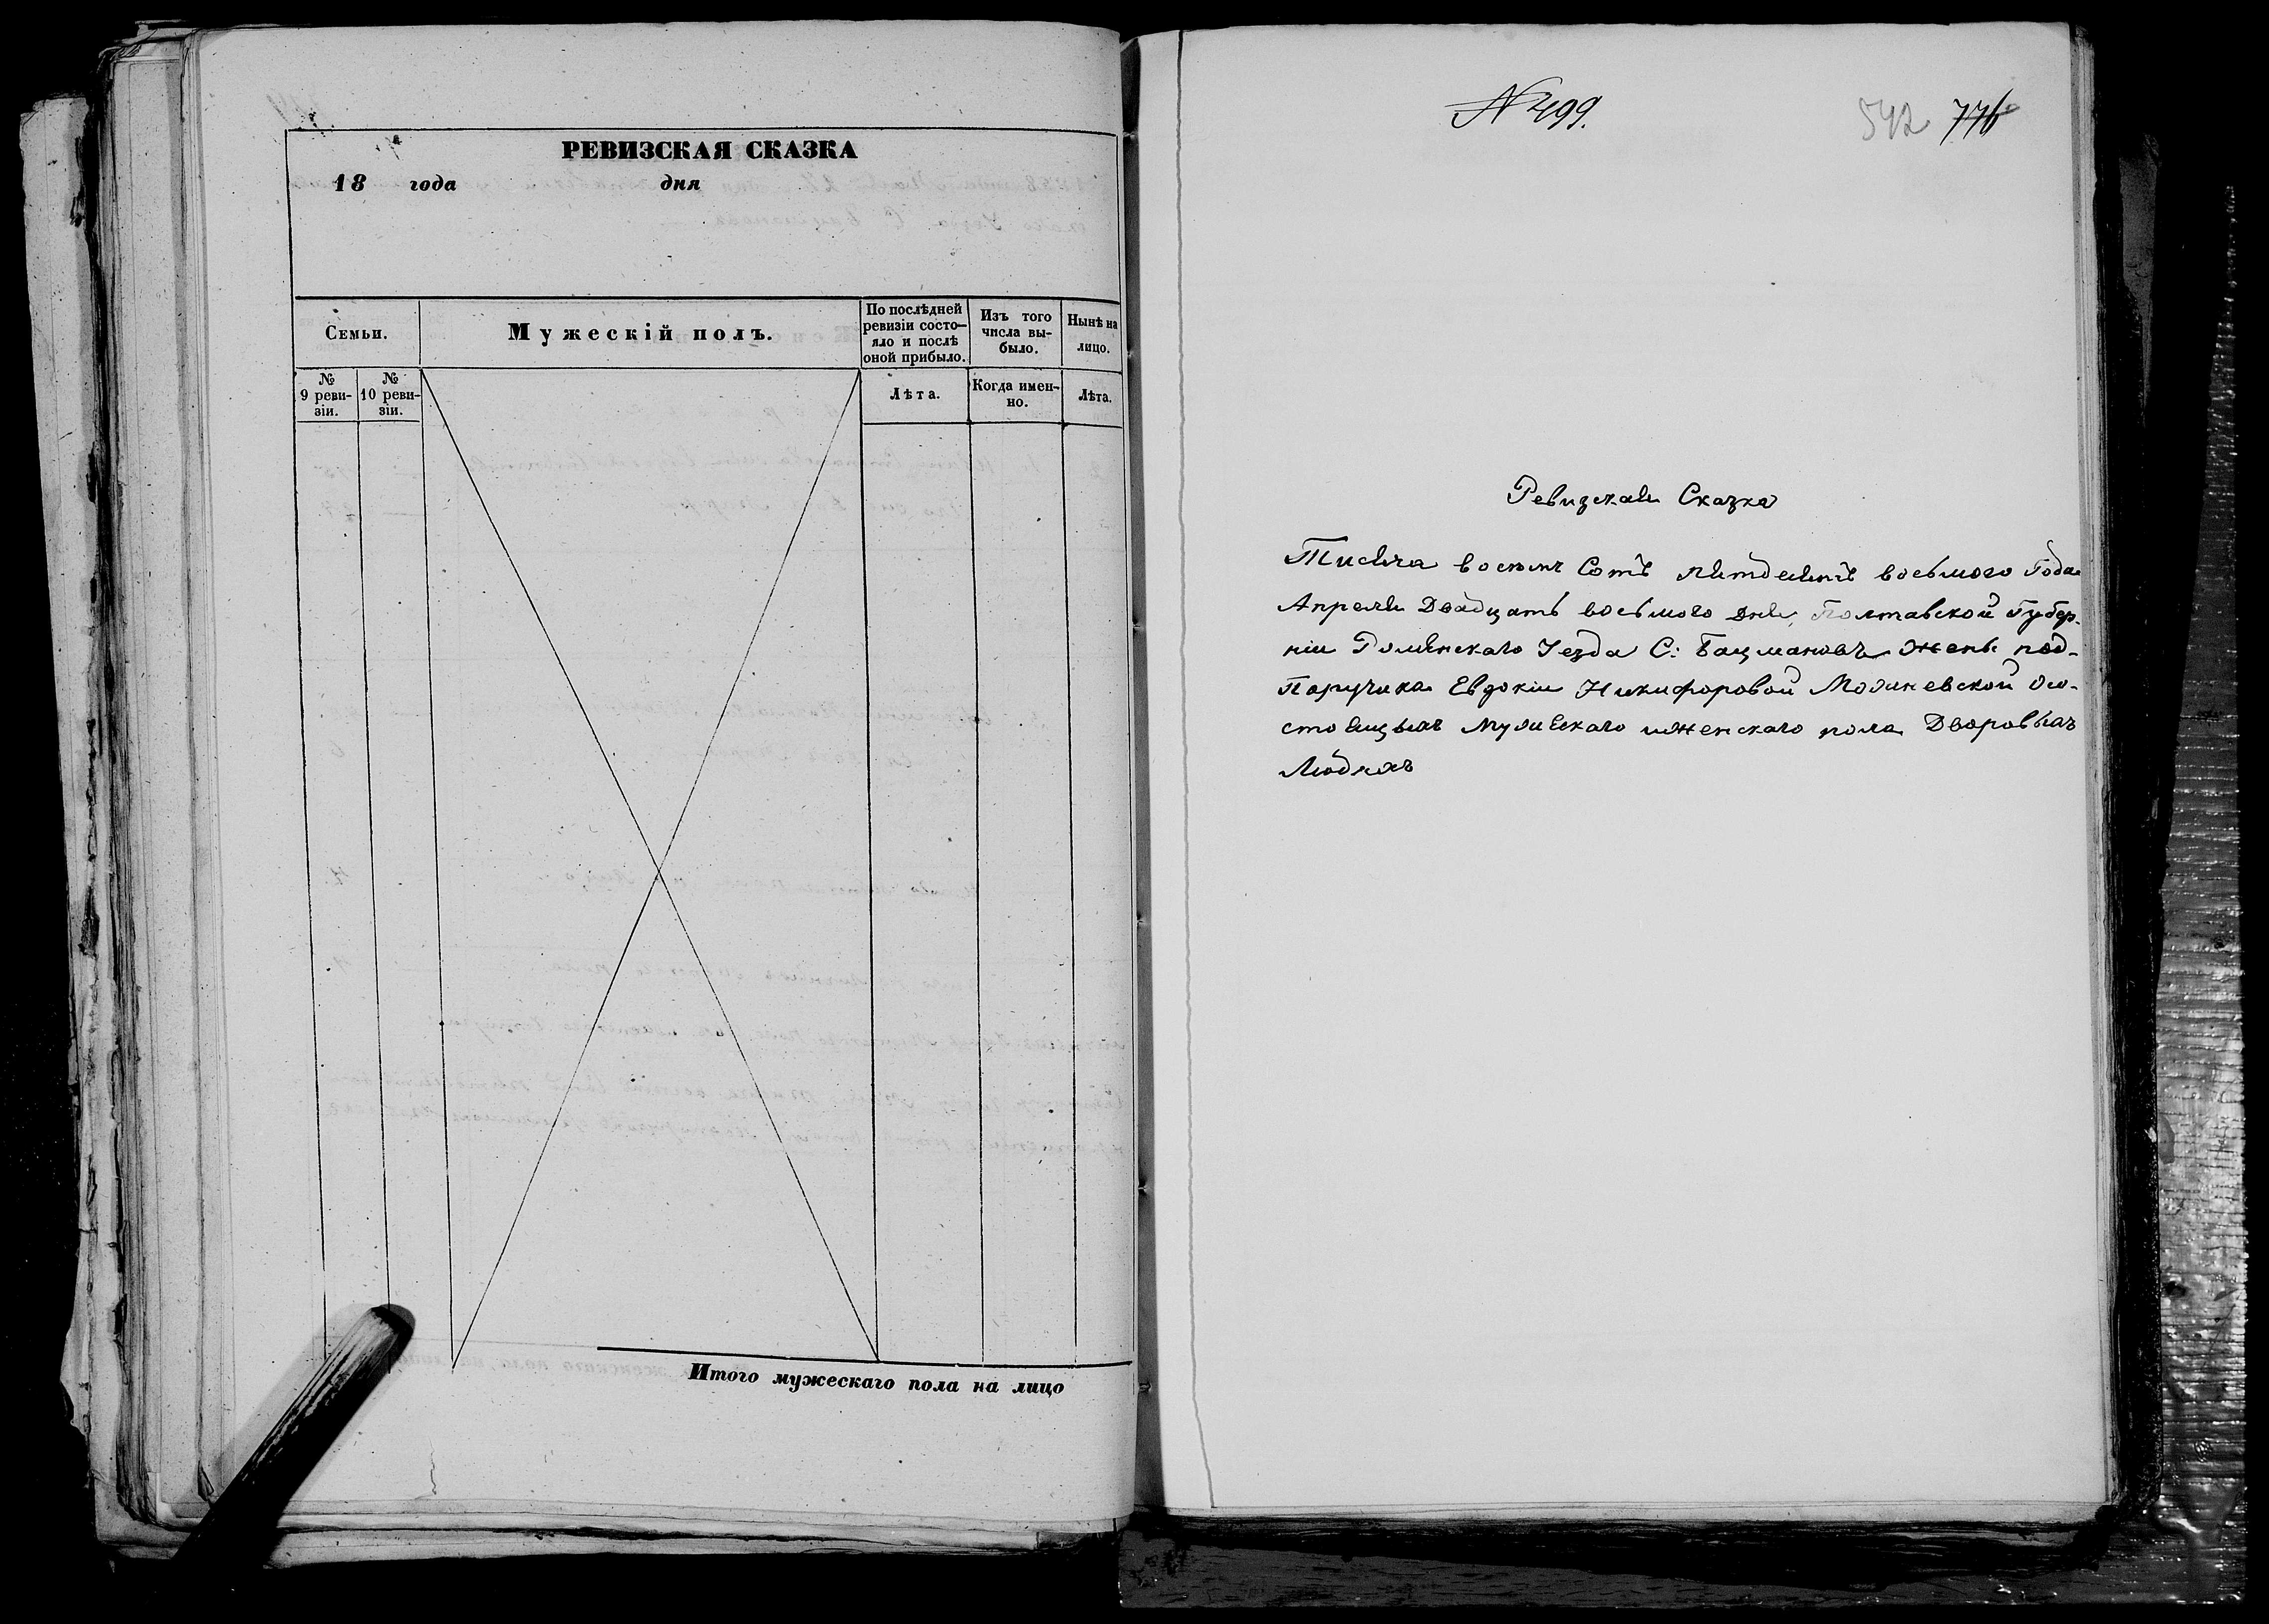 РЕВИЗСКАЯ СКАЗКА
18 года дня
Семьи.
Мужескій полъ.
По послѣдней ревизіи состо-
яло и послѣ
оной прибыло.
Изъ того
числа вы-
было.
Нынѣ на
лицо.
№
9 реви-
зіи.
№
10 реви-
зіи.
Лѣта.
Когда имен-
но.
Лѣта.
Итого мужескаго пола на лицо
№ 499.
542 776
Ревизская Сказка
Тисяча восемъ Сотъ пятдесятъ восьмого Года
Апреля Двадцать восьмого дня, Полтавской Губер-
ніи Роменскаго Уезда С: Бацмановъ жены под-
Поручика Евдокіи Никифоровой
стоящыхъ мужескаго иженскаго пола Дворовыхъ
Людяхъ